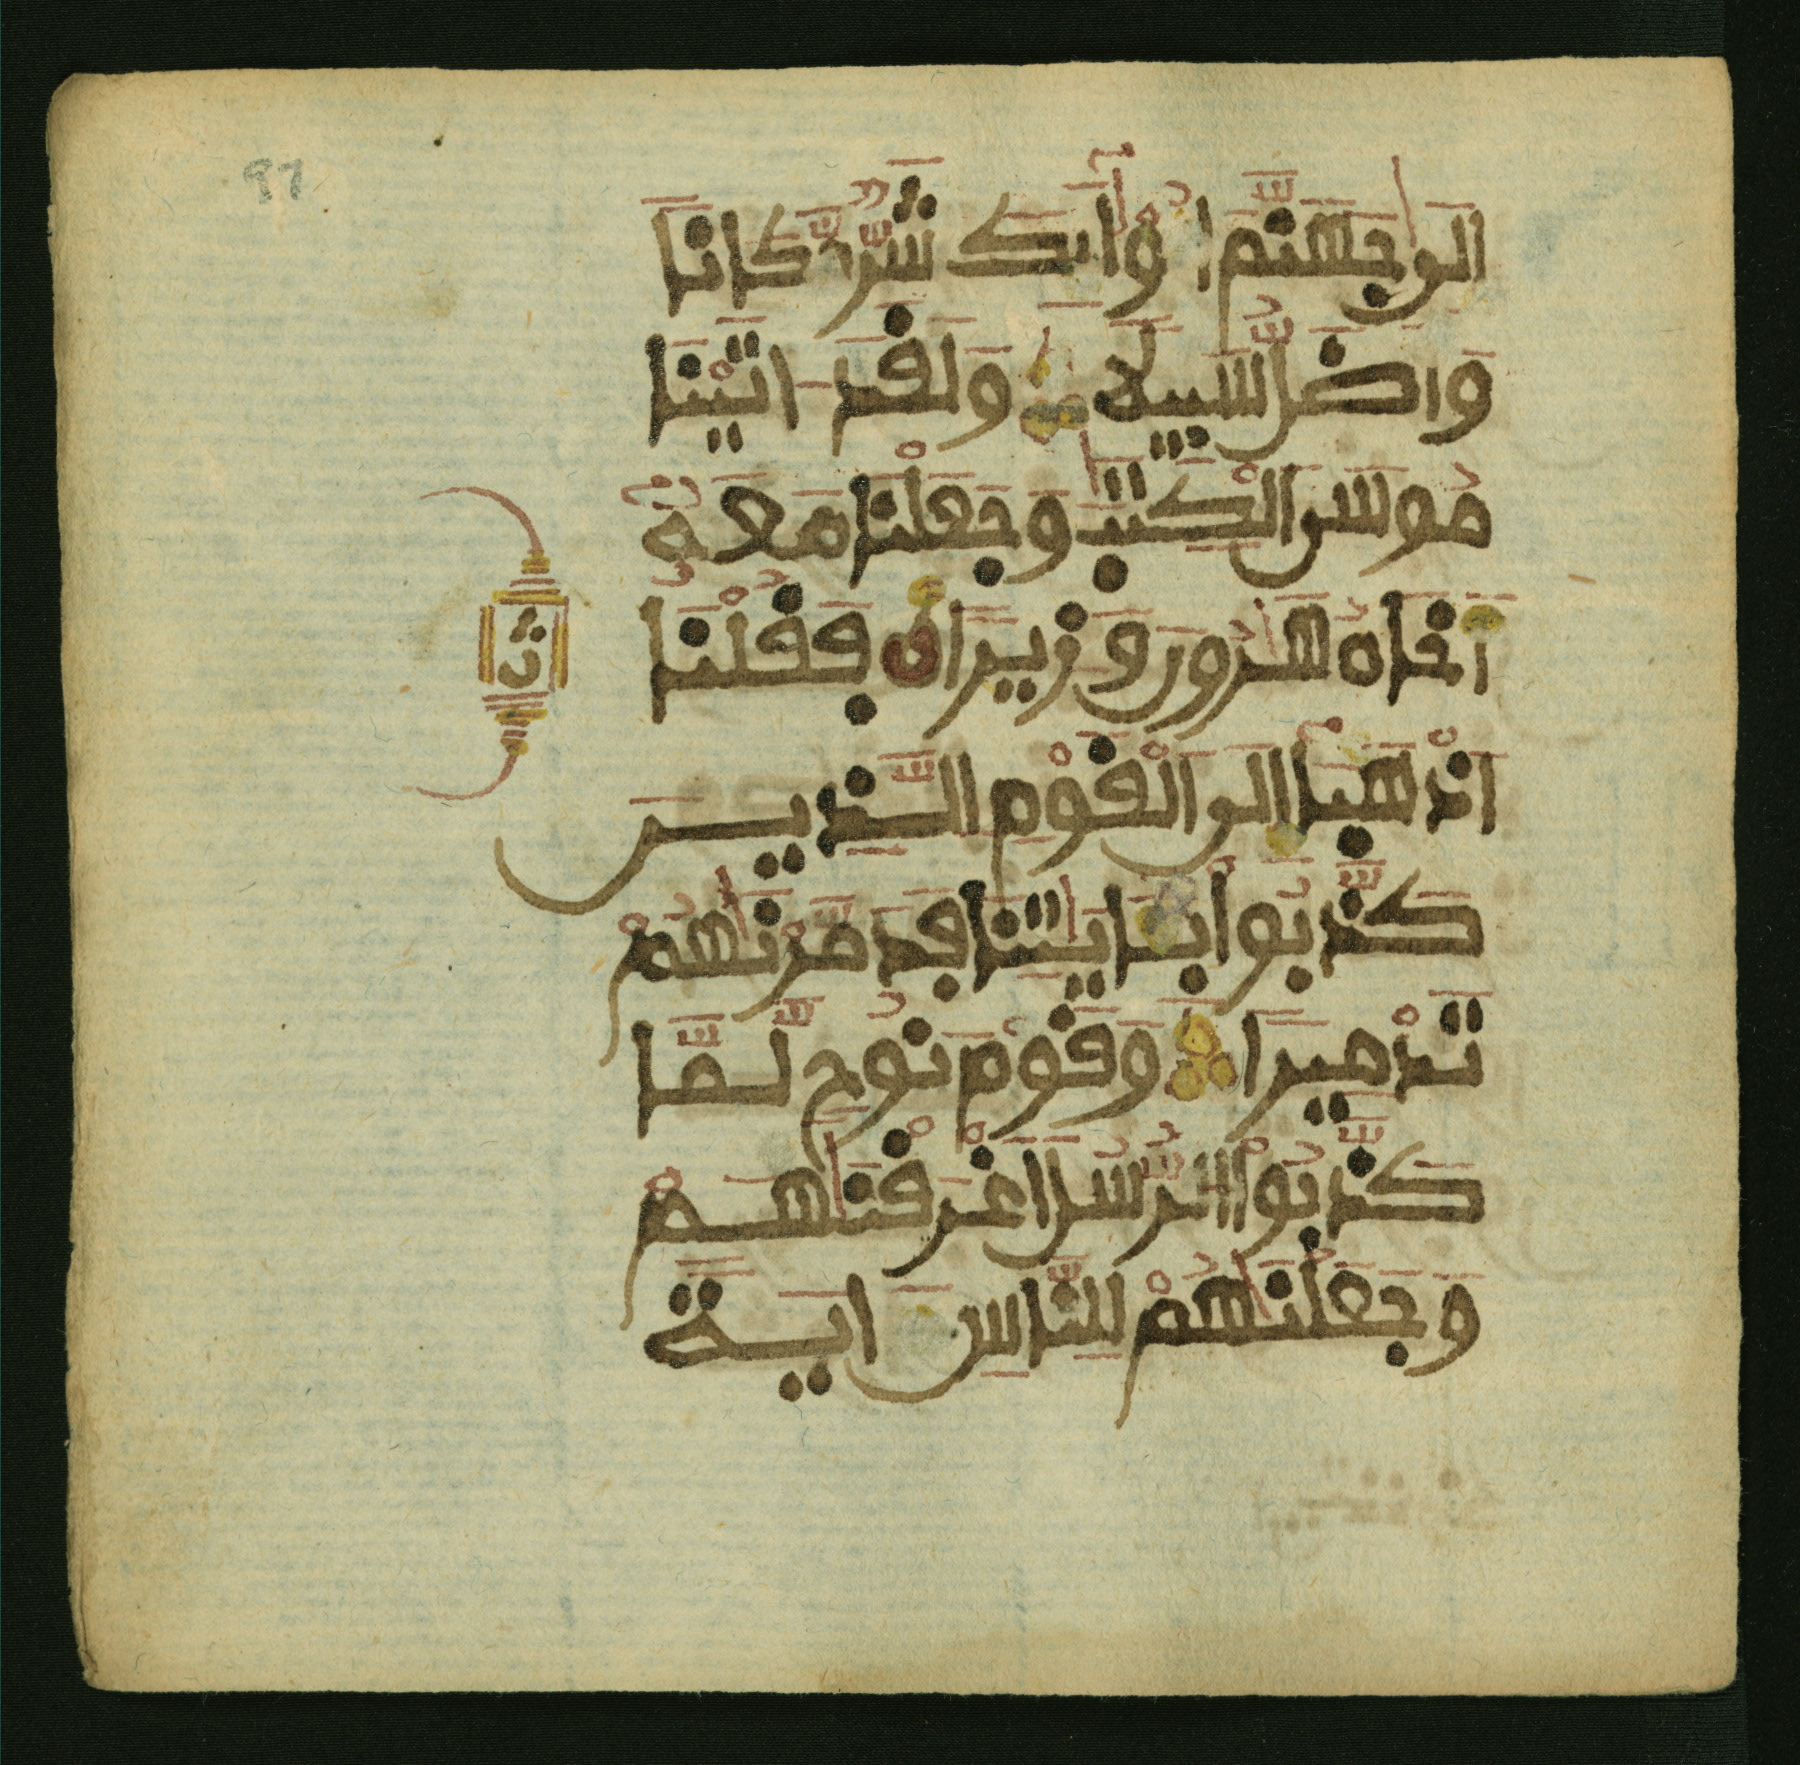 97
الى جهنم اولئك شر مكانا
واضل سبيلا ولقد اتينا
موسى الكتب وجعلنا معه
اخاه هرون وزيرا فقلنا
ث
اذهبا الى القوم الذين
كذبوا بايتنا فدمرنهم
تدميرا وقوم نوح لما
كذبوا الرسل اغرقنهم
وجعلنهم للناس اية